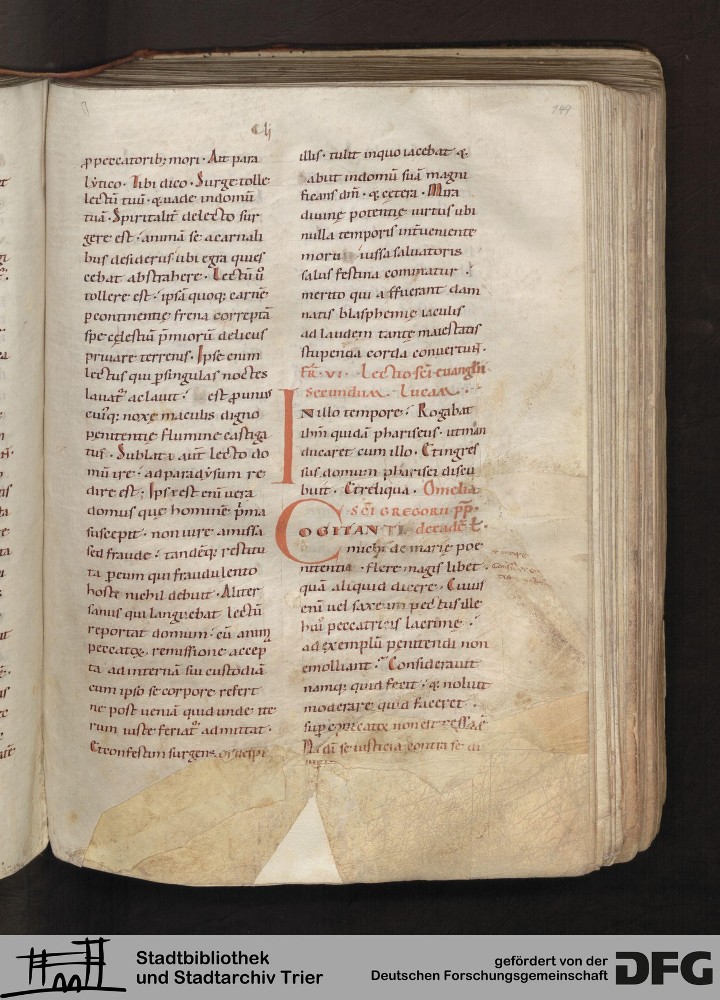 149
p peccatorib; mori · Ait para
lytico · Tibi dico · Surge tolle
lectū tuū · & uade in domū
tuā · Spiritalit̄ de lecto sur
gere est · animā se a carnali
bus desideriis ubi egra quies
cebat abstrahere · Lectū ů
tollere est · ipsā quoq; carnē
p continentie frena correptā
spe celestiū p̄miorū deliciis
priuare terrenis · Ipse enim
lectus qui p singulas noctes
lauat᷑ ac lauit · est p unius
cuiq; noxe maculis digno
penitentie flumine castiga
tus · Sublato aut̄ lecto do
mū ire · ad paradysum re
dire est · Ips̄ est eni uera
domus que hominē p̄ma
suscepit · non iure amissa
sed fraude · tandēq; restitu
ta p eum qui fraudulento
hosti nichil debuit · Aliter
sanus qui languebat lectū
reportat domum · cū anim̄
peccatoꝝ remissione accep
ta ad internā sui custodiā
cum ipso se corpore refert
ne post ueniā quid unde ite
rum iuste feriat᷑ admittat ·
Et confestim surgens
illis · tulit in quo iacebat &
abiit in domū suā magni
ficans dm̄ · & cetera · Mira
diuine potentie uirtus ubi
nulla temporis int̄ueniente
mor iussa saluatoris
salus festina comitatur ·
merito qui affuerant dam
natis blasphemie iaculis
ad laudem tante maiestatis
stupenda corda conuertun̄ ·
Fr̄ · VI · Lectio sc̄i euangl̄ii
secundum · Lucam ·
In illo tempore · Rogabat
ihm̄ quidā phariseus · ut man
ducaret cum illo · Et ingres
sus domum pharisei discu
buit · Et reliqua · Omelia
SC̄I GREGORII PP̄ ·
COGITANTI de eadē l̄ ·
michi de marie pęe
nitentia · flere magis libet ·
quā aliquid dicere · Cuius
eni uel saxeum pectus ille
hui᷑ peccatricis lacrime ·
ad exemplū penitendi non
emolliant · Considerauit
namq; quid fecit · & noluit
moderare quid faceret ·
Stadtbibliothek
und Stadtarchiv Trier
gefördert von der
Deutschen Forschungsgemeinschaft
DFG